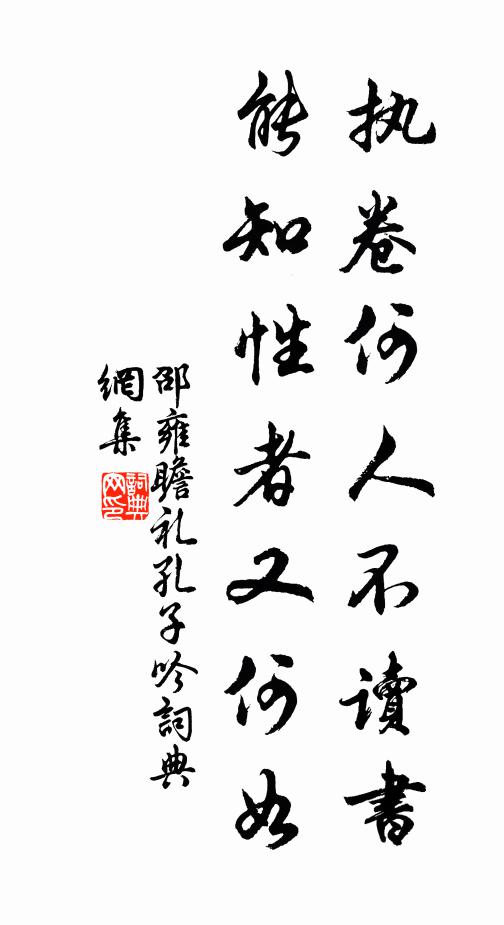 执卷何人不读書
能知性者又何如
邵雍瞻礼孔子吟詞典
網集
詞典
网印